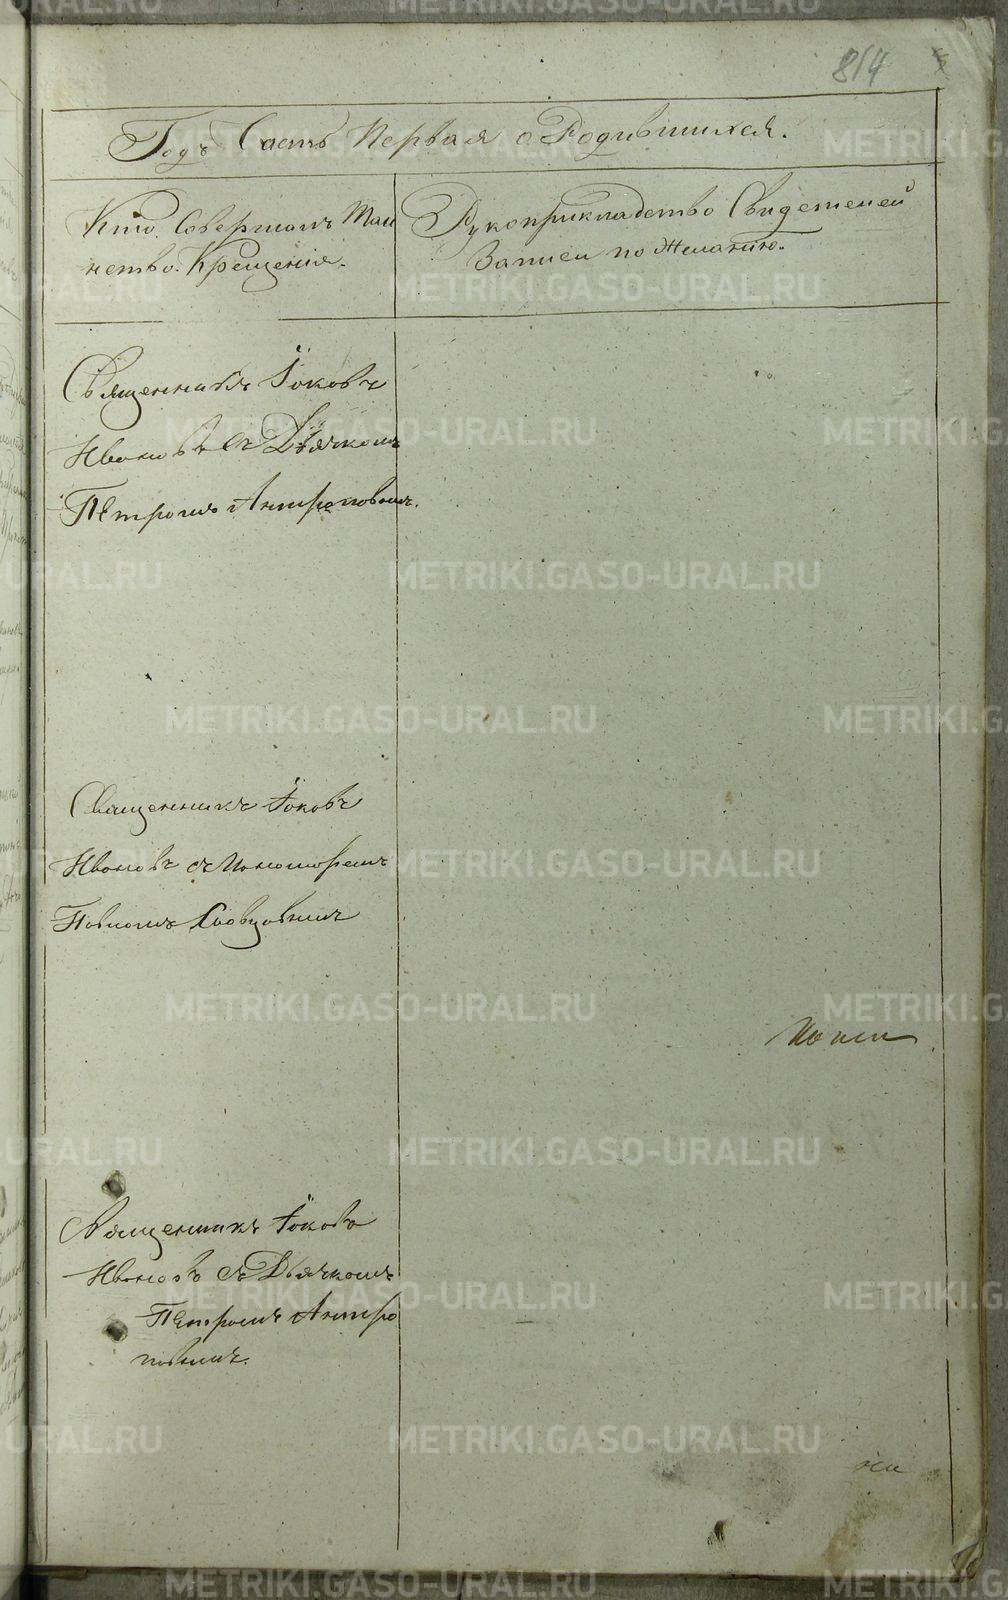 814
Годъ Часть Первая о Родившихся.
Кто Совершалъ Таи
нство Крещенія.
Рукоприкладство Свидетелей
Записи по Желанию.
Священникъ Іаковъ
Ивановъ съ Дьячкомъ
Петромъ Антроповымъ.
Священникъ Іаковъ
Ивановъ съ Пономаремъ
Павломъ Словцовымъ
Священникъ Іаковъ
Ивановъ съ Дьячкомъ
Петромъ Антро
повымъ.
METRIKI.GASO-URAL.RU